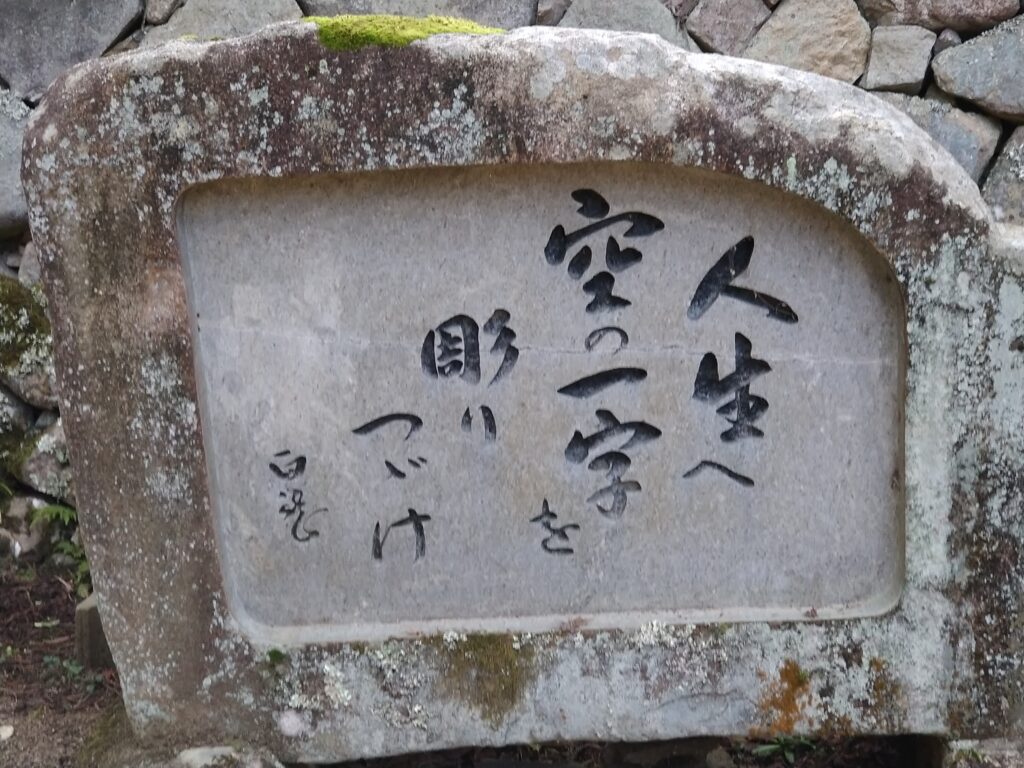 人生へ
空の一字を
彫り
つゞけ